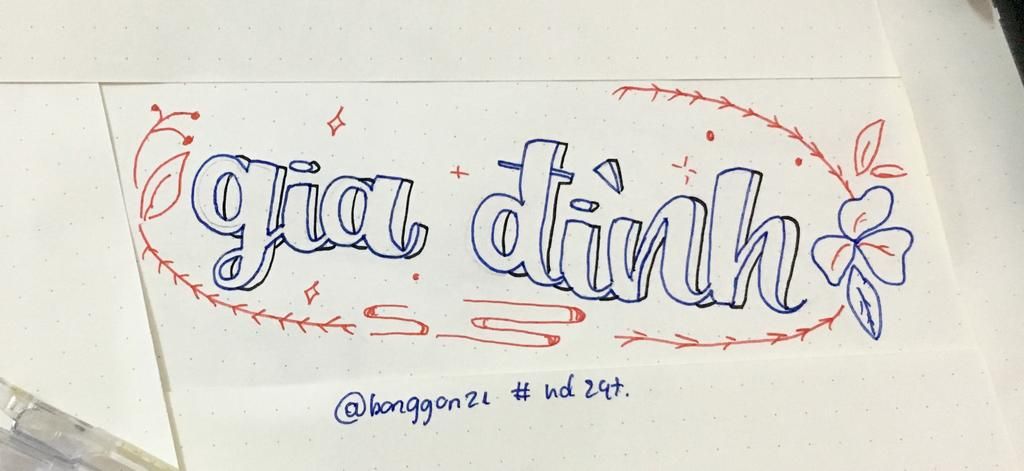 gia đình
@bonggon21 # nd 29t.